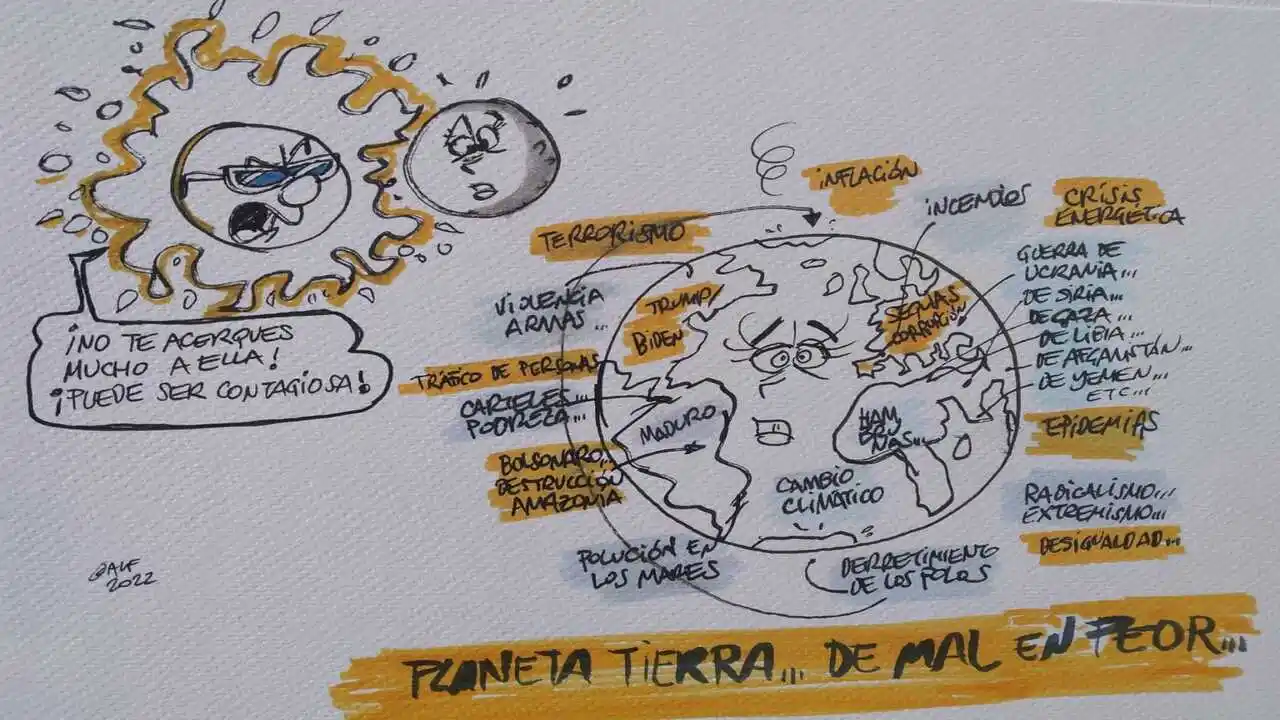 ¡NO TE ACERQUES
MUCHO A ELLA!
¡PUEDE SER CONTAGIOSA!
INFLACIÓN
INCENDIOS
CRISIS
ENERGETICA
TERRORISMO
GUERRA DE
UCRANIA...
DE SIRIA...
DE GAZA...
DE LIBIA...
DE AFGANISTÁN...
DE YEMEN...
ETC...
VIOLENCIA
ARMAS...
TRUMP
BIDEN
SEQUIAS
CORRUPCIÓN
TRÁFICO DE PERSONAS
CARTELES...
POBREZA...
MADURO
HAM
BRU
NAS...
EPIDEMIAS
BOLSONARO...
DESTRUCCIÓN
AMAZONIA
CAMBIO
CLIMÁTICO
RADICALISMO...
EXTREMISMO...
DESIGUALDAD...
POLUCIÓN EN
LOS MARES
DERRETIMIENTO
DE LOS POLOS
@ALF
2022
PLANETA TIERRA... DE MAL EN PEOR...